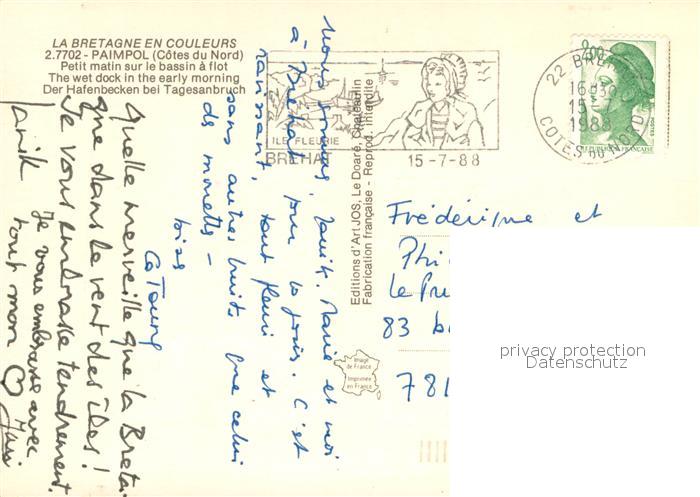 LA BRETAGNE EN COULEURS
2.7702 - PAIMPOL (Côtes du Nord)
Petit matin sur le bassin à flot
The wet dock in the early morning
Der Hafenbecken bei Tagesanbruch
ILE FLEURIE
BREHAT
15-7-88
22 BREHAT
16H30
15-7
1988
COTES DU NORD
2,00
POSTES
REPUBLIQUE FRANÇAISE
Nous sommes, Janik. Marie et moi
à Bréhat pour 10 jours. C'est
ravissant, tout fleuri et
sans autres bruits que celui
de mouettes -
bises
Quelle merveille que la Breta
que dans le vent des îles!
Je vous embrasse tendrement.
Janik
Je vous embrasse avec
tout mon ♡
Editions d'Art JOS, Le Doaré, Chateaulin
Fabrication française - Reprod. interdite
Image
de France
Imprimée
en France
Frédérique et
Phi
Le
83
781
privacy protection
Datenschutz